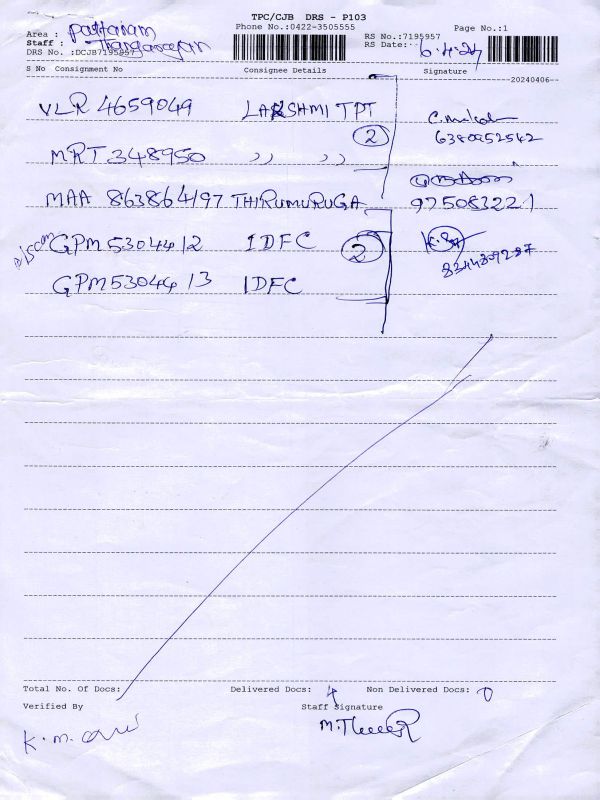 TPC/CJB DRS - P103
Phone No.:0422-3505555
Page No.:1
Area : Pattanam
RS No.:7195957
Staff :
RS Date: 6.4.24
DRS No. :DCJB7195957
S No Consignment No Consignee Details Signature
20240406
VLR 4659049 LAKSHMI TPT
6380952542
2
MRT 348950 ,, ,,
MAA 863864197 THIRUMURUGA 975083221
GPM5304412 IDFC 2
8344809287
GPM53044 13 IDFC
Total No. Of Docs: Delivered Docs: 4 Non Delivered Docs: 0
Verified By Staff Signature